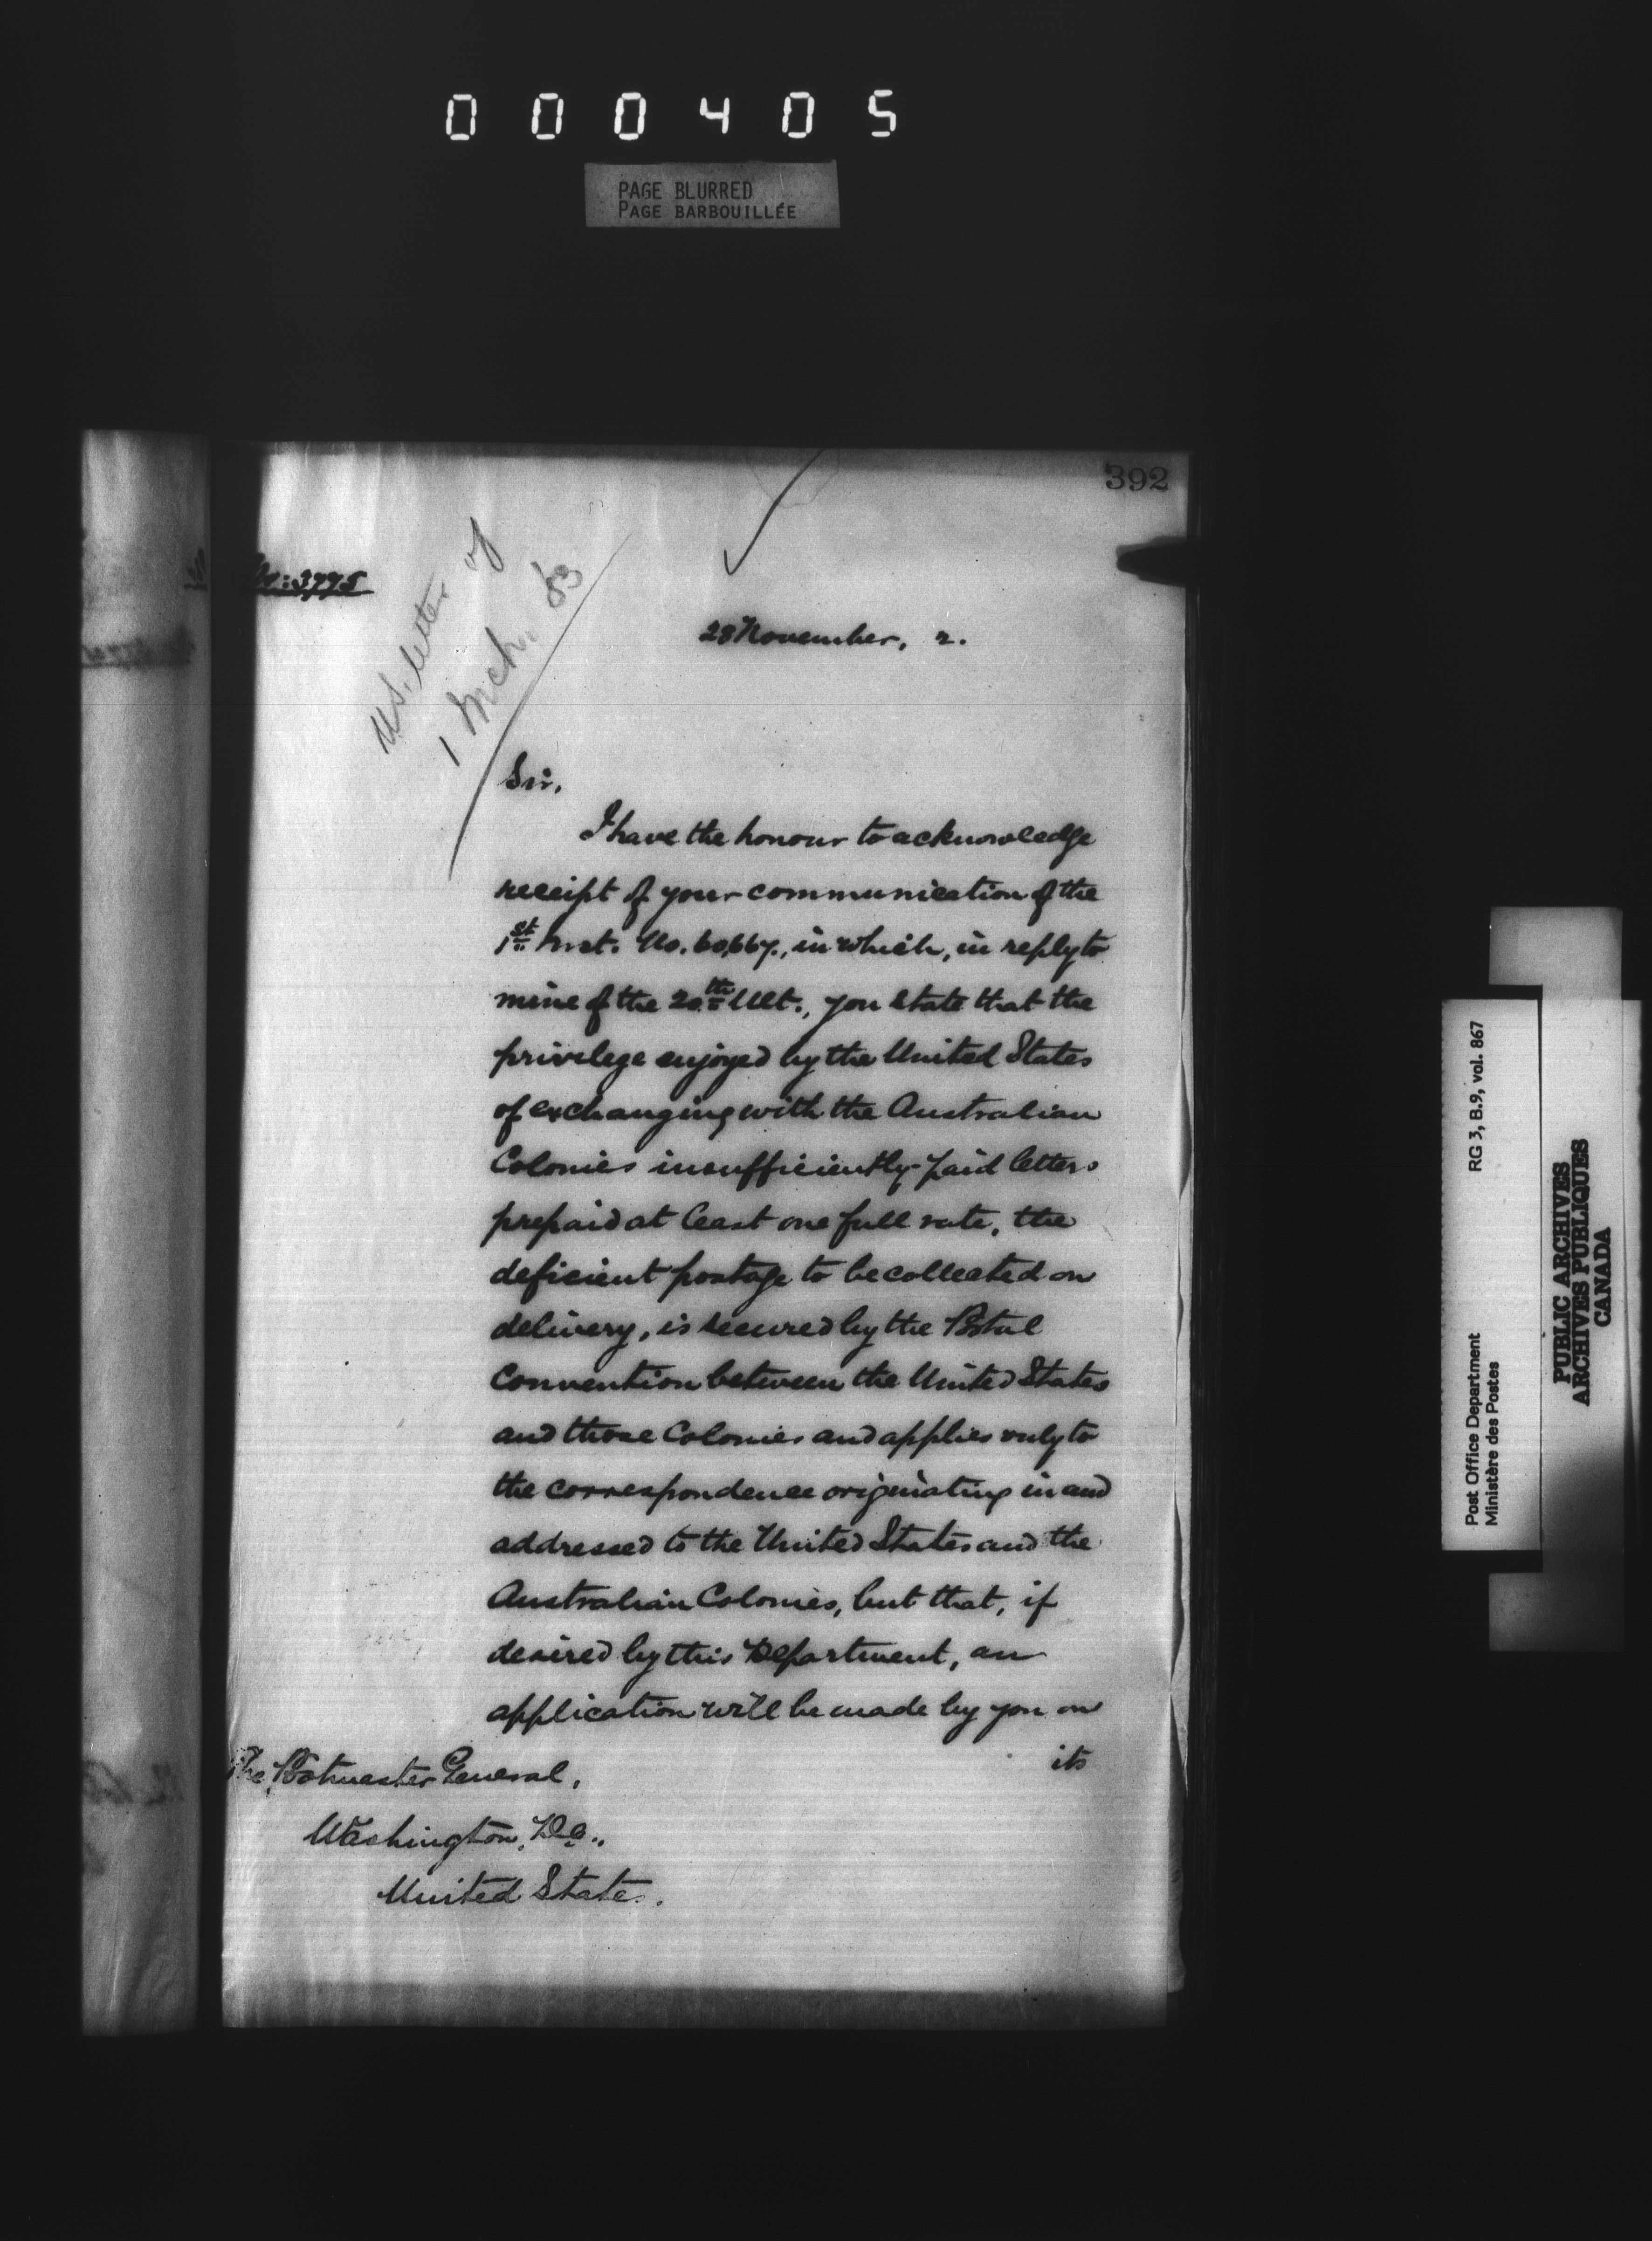 000405
PAGE BLURRED
PAGE BARBOUILLÉE
392
No: 3775
U.S. letter of
1 Mch. 83
28 November, 2.
Sir,
I have the honour to acknowledge
receipt of your communication of the
1st Inst. No. 60,667., in which, in reply to
mine of the 20th Ult., you state that the
privilege enjoyed by the United States
of exchanging with the Australian
Colonies insufficiently-paid letters
prepaid at least one full rate, the
deficient postage to be collected on
delivery, is secured by the Postal
Convention between the United States
and those Colonies and applies only to
the correspondence originating in and
addressed to the United States and the
Australian Colonies, but that, if
desired by this Department, an
application will be made by you on
its
The Postmaster General,
Washington, D.C.,
United States.
Post Office Department
Ministère des Postes
RG 3, B.9, vol. 867
PUBLIC ARCHIVES
ARCHIVES PUBLIQUES
CANADA